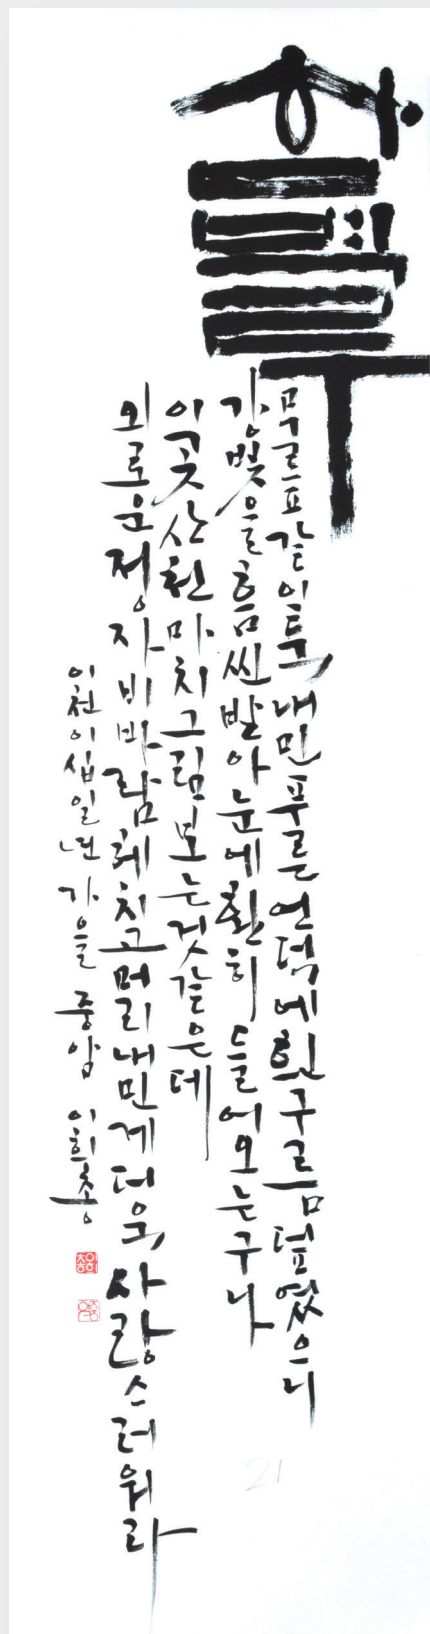 무르프같이 툭, 내민 푸른 언덕에 흰구름 덮였으니
강볓을 흠씬 받아 눈에 환히 들어오는구나
이곳 산천 마치 그림 보는것 같은데
외로운 정자 비바람 헤치고 머리 내민게 더욱, 사랑스러워라
이천이십일년 가을 중암 이희총
21